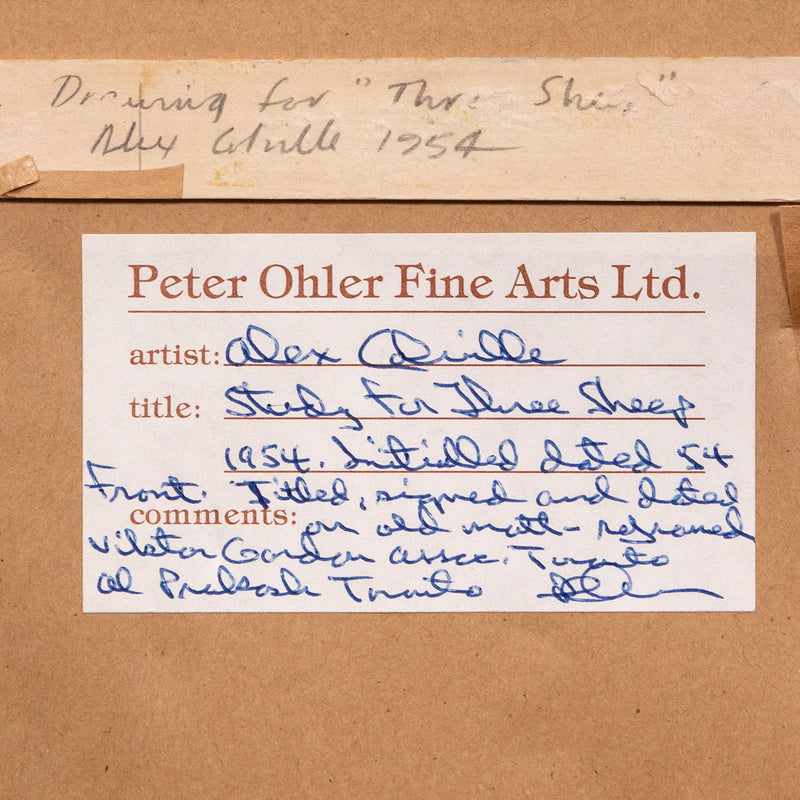 Drawing for "Three Sheep"
Alex Colville 1954
Peter Ohler Fine Arts Ltd.
artist: Alex Colville
title: Study for Three Sheep
1954. Initialled dated 54
Front. Titled, signed and dated
comments: on old matt - reframed
Gordon assoc. Toronto
Toronto